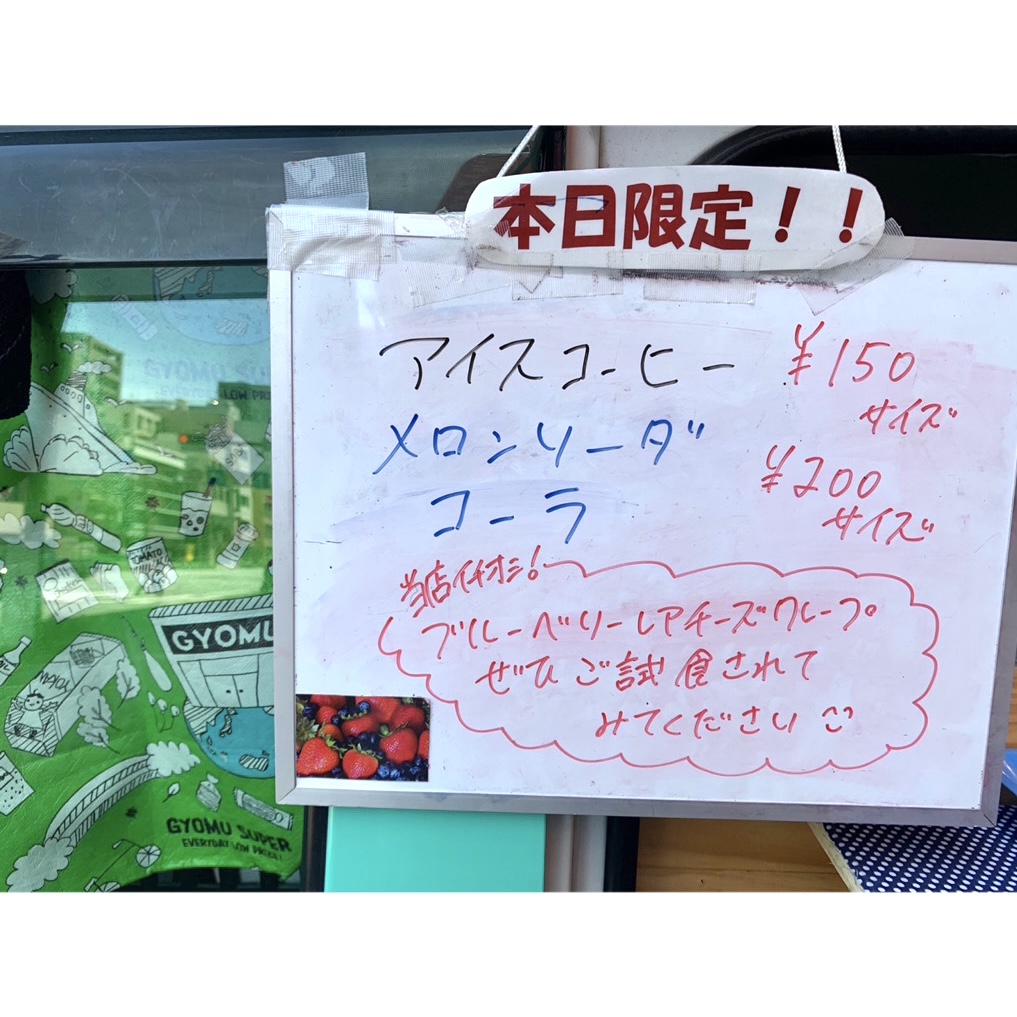 本日限定！！
アイスコーヒー ¥150
サイズ
メロンソーダ
¥200
コーラ
サイズ
当店イチオシ！
ブルーベリーレアチーズクレープ。
ぜひご試食されて
みてください
GYOMU SU
LOW PRI
TOMATO
GYOMU
GYOMU SUPER
EVERYDAY LOW PRICE!